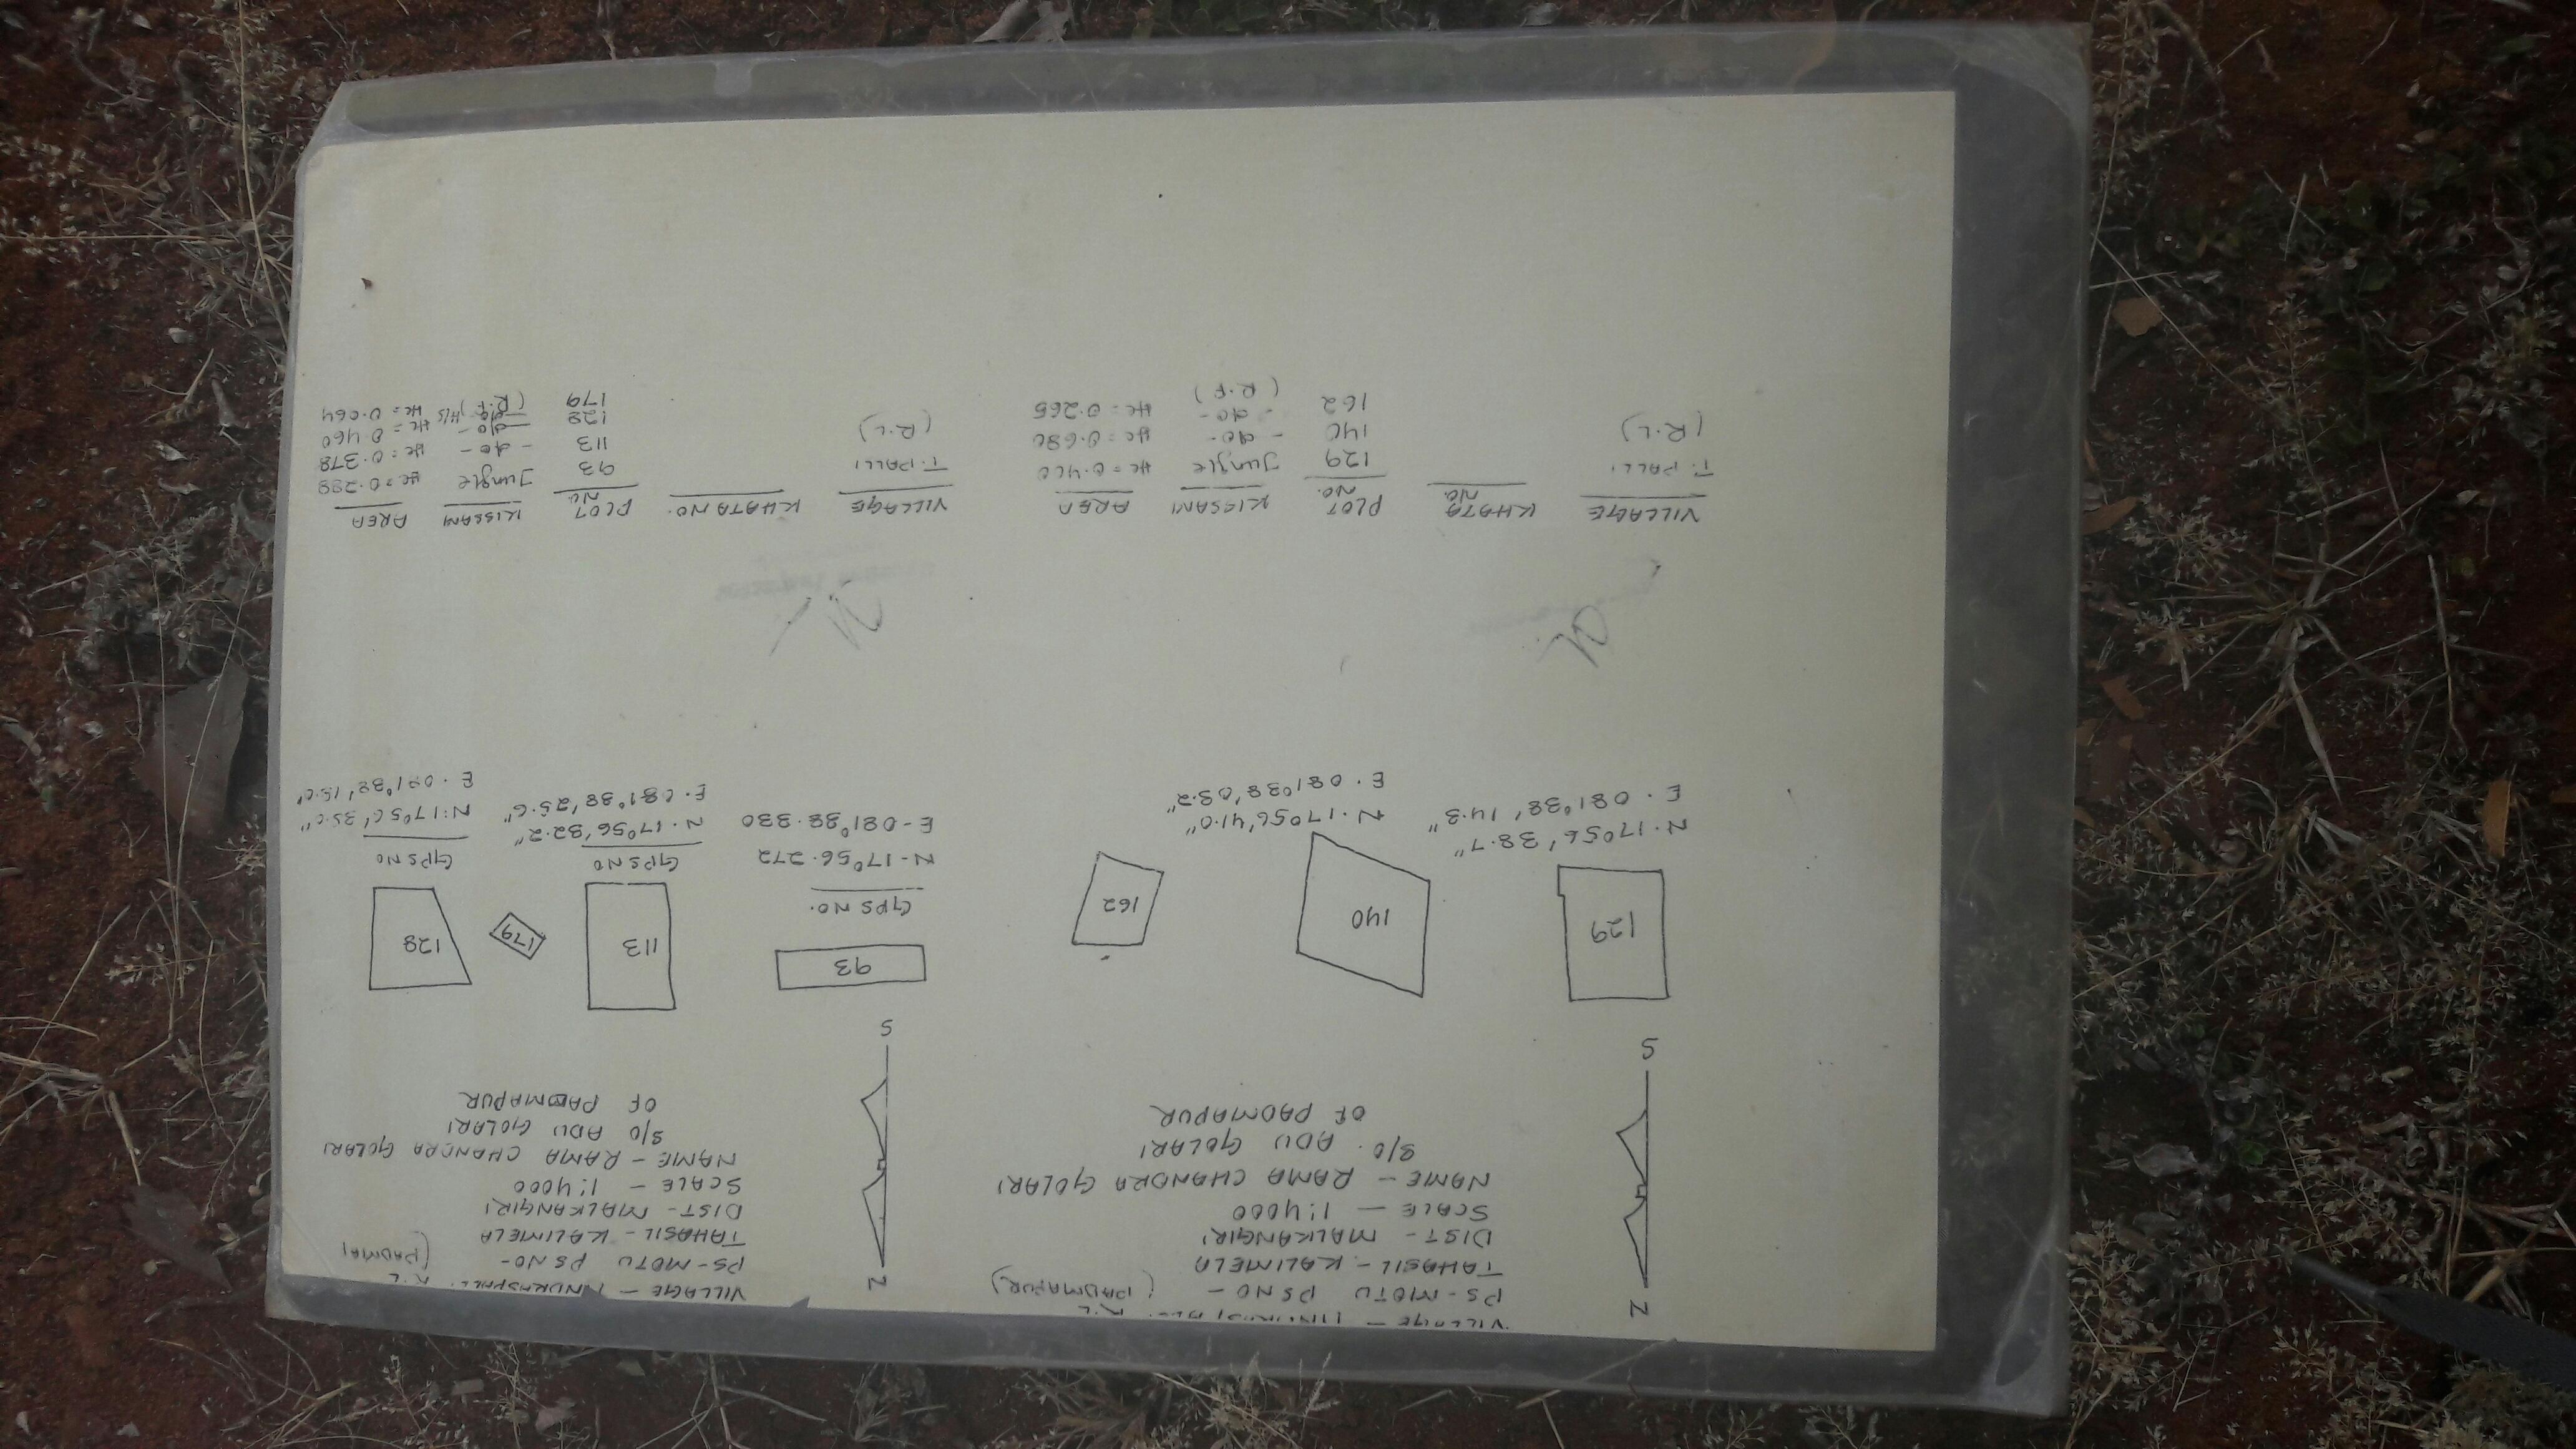 N
S
VILLAGE –
PS - MOTU PS NO – (PADMAPUR)
TAHASIL - KALIMELA
DIST - MALKANGIRI
SCALE — 1:4000
NAME – RAMA CHANDRA GOLARI
S/O. ADU GOLARI
OF PADMAPUR
129
140
162
N. 17°56' 38.7"
E. 081°38' 14.3"
N. 17°56' 41.0"
E. 081°38' 03.2"
VILLAGE KHATA NO. PLOT NO. KISSAM AREA
T. PALLI 129 Jungle
(R.L) 140 - do - Hc = 0.680
162 - do - Hc = 0.265
(R.F)
N
S
VILLAGE –
PS - MOTU PS NO -
TAHASIL - KALIMELA
DIST - MALKANGIRI
SCALE – 1:4000
NAME – RAMA CHANDRA GOLARI
S/O ADU GOLARI
OF PADMAPUR
93
113
179
128
GPS NO.
N - 17°56.272
E - 081°38.330
GPS NO
N. 17°56' 32.2"
E. 081°38' 25.6"
GPS NO
N: 17°56' 35.0"
E. 081°38' 15.0"
VILLAGE KHATA NO. PLOT NO. KISSAM AREA
T. PALLI 93 Jungle
(R.L) 113 - do - Hc = 0.378
128 - do - Hc = 0.460
179 - do - H/S Hc = 0.064
(R.F)